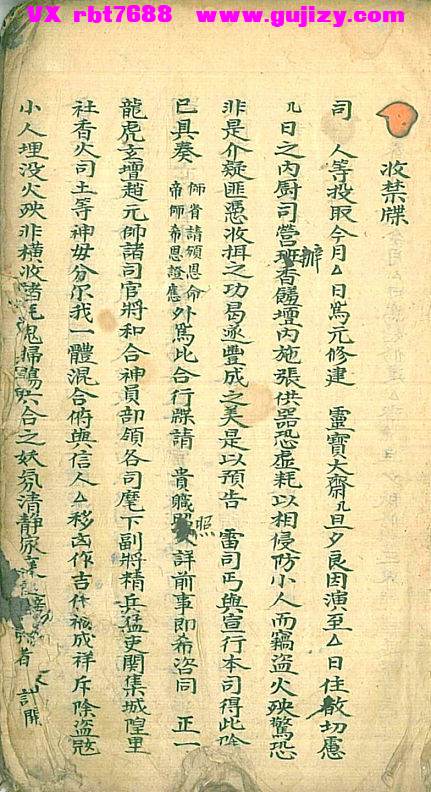 VX rbt7688 www.gujizy.com
收禁牒
司 人等投取今月△日為元修建 靈寶大齋几旦夕良因演至△日住散切慮
几日之内厨司營辦香饈壇内施張供器恐虚耗以相侵防小人而竊盗火殃驚恐
非是介疑匪憑收揖之功曷遂豐成之美是以預告 雷司丐與宣行本司得此除
已具奏 師省請頒恩命
帝師希恩證應 外為此合行牒請 貴職照詳前事即希咨同 正一
龍虎玄壇趙元帥諸司官將和合神員部領各司麾下副將精兵猛吏関集城隍里
社香火司土等神毋分尔我一體混合俯與信人△移凶作吉休禍成祥斥除盗宼
小人埋没火殃非橫收諸 鬼掃蕩六合之妖氛清静家 者